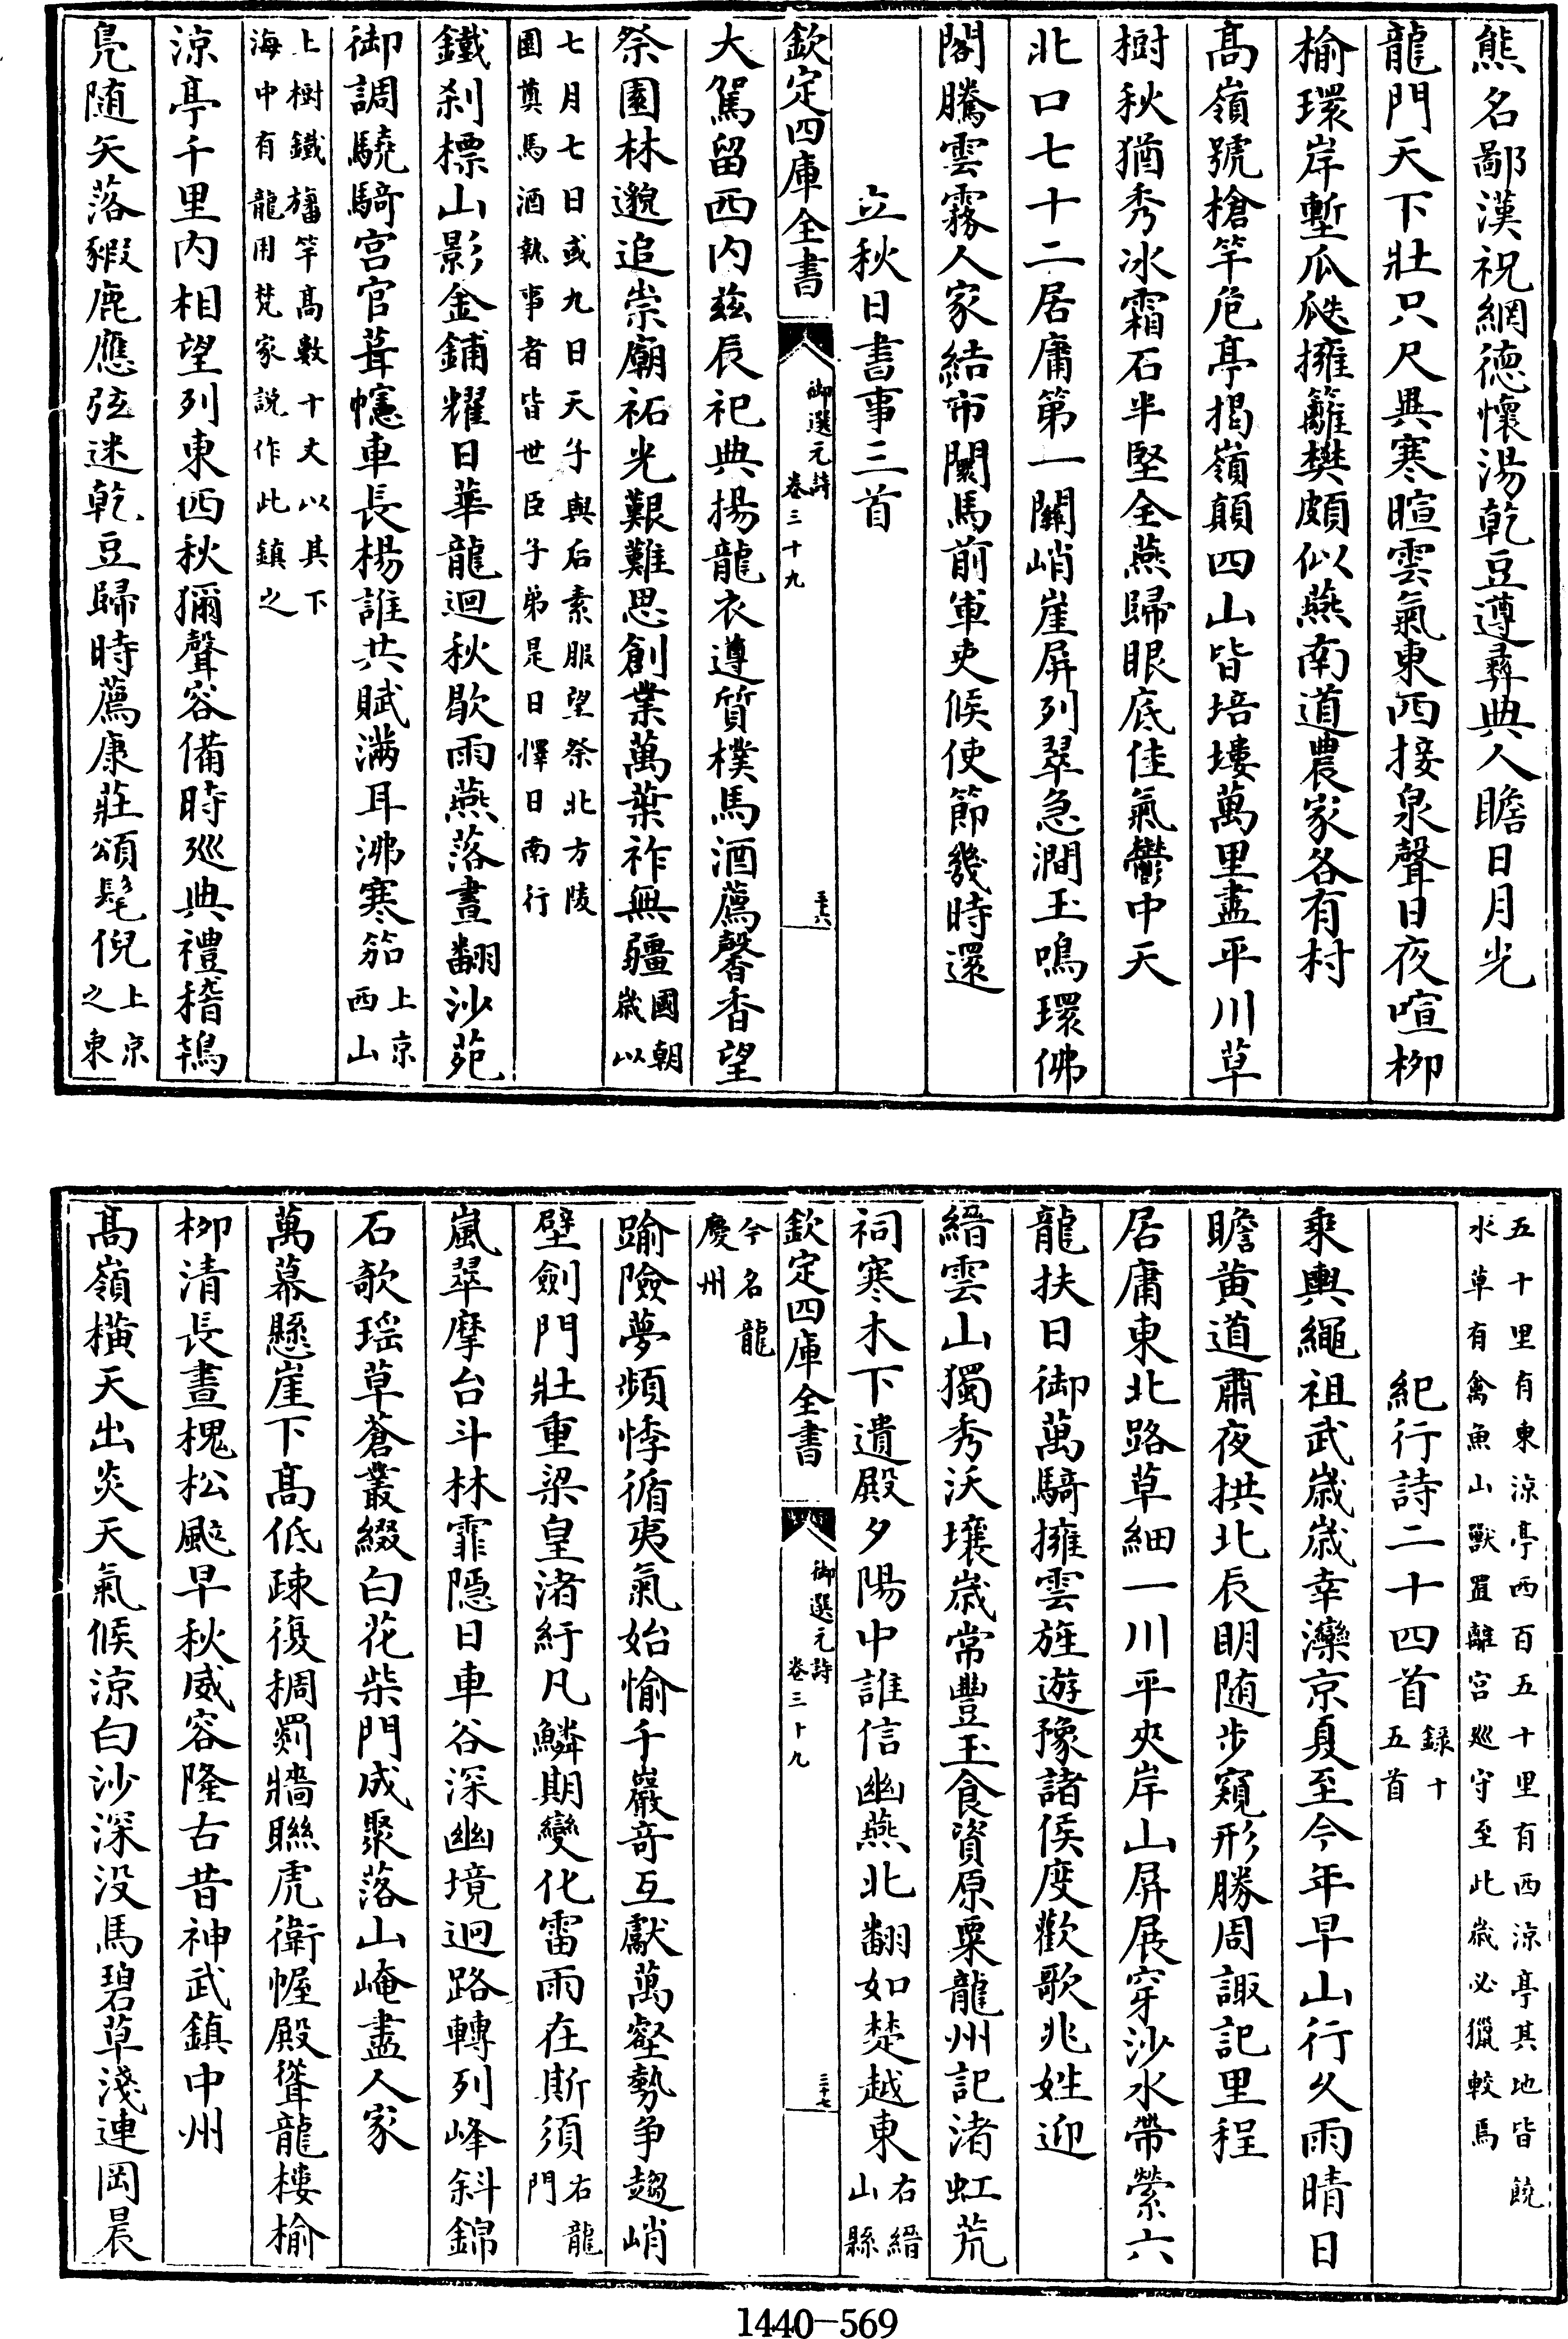 熊名鄙漢祝網德懷湯乾豆遵彞典人瞻日月光
龍門天下壯只尺異寒暄雲氣東西接泉聲日夜喧栁
榆環岸塹瓜瓞擁籬樊頗似燕南道農家各有村
髙嶺號槍竿危亭掲嶺顛四山皆培塿萬里盡平川草
樹秋猶秀冰霜石半堅全燕歸眼底佳氣鬱中天
北口七十二居庸第一關峭崖屏列翠急澗玉鳴環佛
閣騰雲霧人家結市闤馬前軍吏候使節幾時還
立秋日書事三首
欽定四庫全書
御選元詩
卷三十九
三十六
大駕留西内兹辰祀典揚龍衣遵質樸馬酒薦馨香望
祭園林邈追崇廟祏光艱難思創業萬葉祚無疆
國朝
歳以
七月七日或九日天子與后素服望祭北方陵
園奠馬酒執事者皆世臣子弟是日擇日南行
鐵刹標山影金鋪耀日華龍迴秋歇雨燕落晝翻沙苑
御調驍騎宫官葺幰車長楊誰共賦滿耳沸寒笳
上京
西山
上樹鐵旛竿髙數十丈以其下
海中有龍用梵家説作此鎮之
涼亭千里内相望列東西秋獮聲容備時廵典禮稽鴇
鳬随矢落豭鹿應弦迷乾豆歸時薦康莊頌髦倪
上京
之東
五十里有東涼亭西百五十里有西涼亭其地皆饒
水草有禽魚山獸置離宫廵守至此歳必獵較焉
紀行詩二十四首
録十
五首
乘輿繩祖武歳歳幸灤京夏至今年早山行久雨晴日
瞻黄道肅夜拱北辰明随步窺形勝周諏記里程
居庸東北路草細一川平夾岸山屏展穿沙水帶縈六
龍扶日御萬騎擁雲旌遊豫諸侯度歡歌兆姓迎
縉雲山獨秀沃壤歳常豐玉食資原粟龍州記渚虹荒
祠寒木下遺殿夕陽中誰信幽燕北翻如楚越東
右縉
山縣
欽定四庫全書
御選元詩
卷三十九
三十七
今名龍
慶州
踰險夢頻悸循夷氣始愉千巖竒互獻萬壑勢争趨峭
壁劍門壯重梁皇渚紆凡鱗期變化雷雨在斯須
右龍
門
嵐翠摩台斗林霏隠日車谷深幽境迥路轉列峰斜錦
石欹瑶草蒼叢綴白花柴門成聚落山崦盡人家
萬幕懸崖下髙低疎復稠罽牆聯虎衛幄殿聳龍樓榆
栁清長晝槐松颭早秋威容隆古昔神武鎮中州
髙嶺横天出炎天氣候涼白沙深没馬碧草淺連岡晨
1440—569